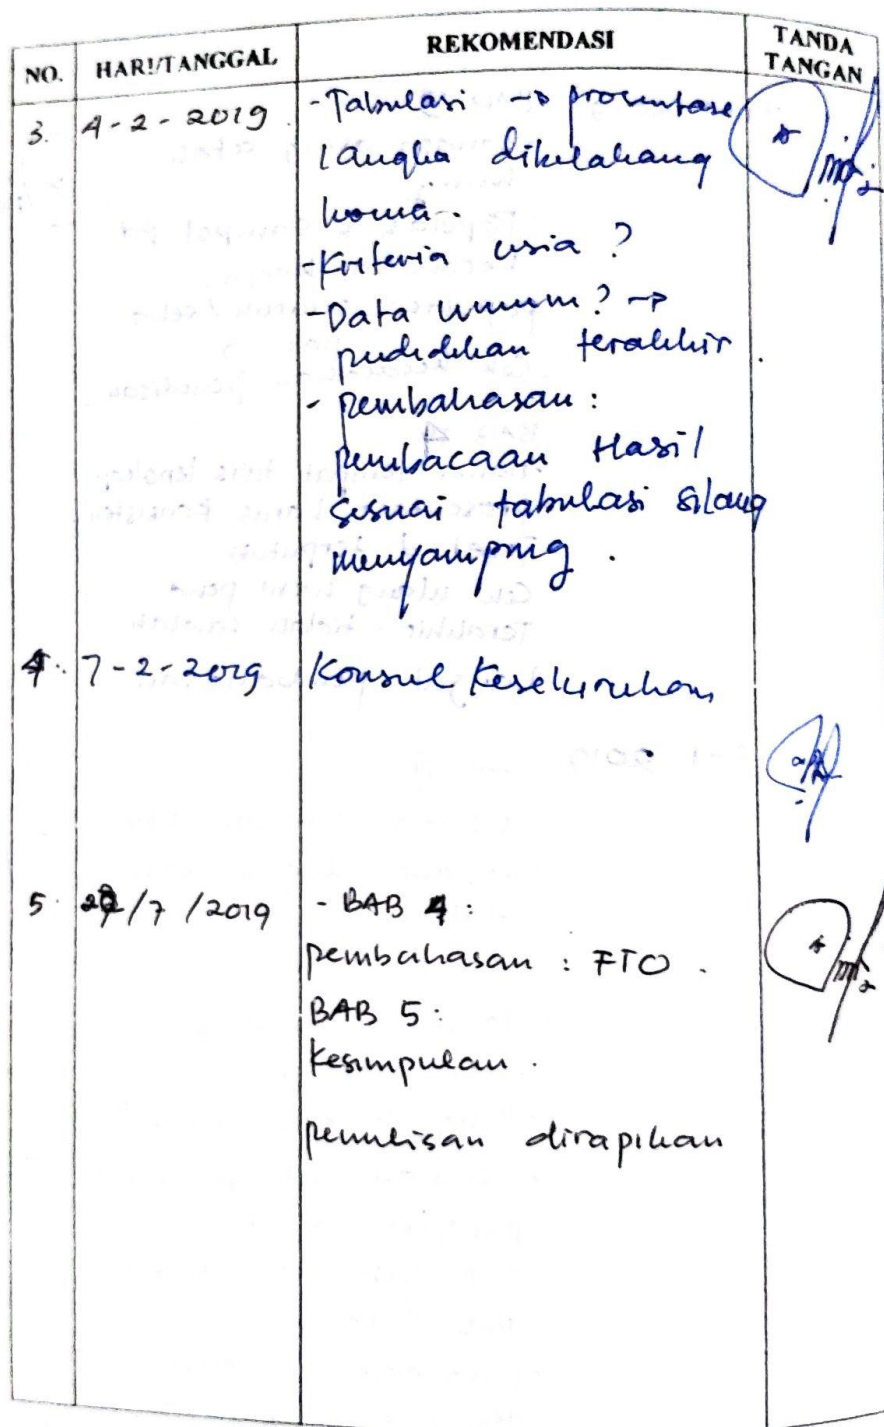 NO. HARI/TANGGAL REKOMENDASI TANDA TANGAN
3. 4-2-2019 - Tabulasi → prosentase
1 angka dibelakang
koma.
- Kriteria usia ?
- Data umum ? →
pendidikan terakhir.
- pembahasan :
pembacaan Hasil
sesuai tabulasi silang
menyamping.
4. 7-2-2019 Konsul Keseluruhan
5. /7/2019 - BAB 4 :
pembahasan : FTO.
BAB 5 :
Kesimpulan.
penulisan dirapikan